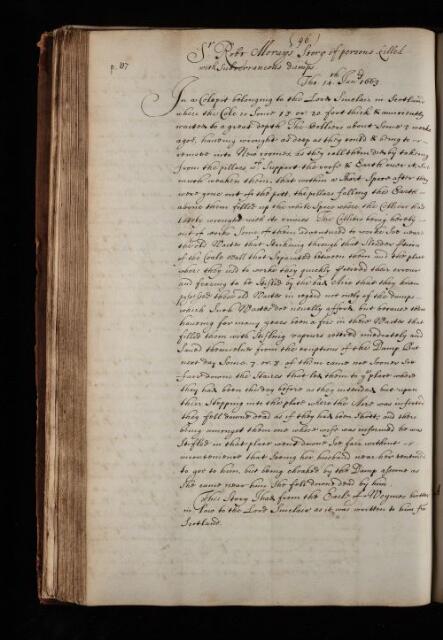 (96)
p. 117
Sr Robt Morays Story of persons killed
with Subterraneous damps
The 14th Jan: 1663
In a Colepit belonging to the Lord Sinclair in Scotland
where the Cole is Some 18 or 20 foot thick & antiently
wasted to a great depth The Colliers about Some weeks
agoe, haveing wrought as deep as they could & being to re-
remove into New roomes as they call them did by taking
from the pillars Support the roofe & Earth over it So
much weaken them, that within a Short Space after they
were gone out of the pitt, the pillars falling the Earth
above them filled up the whole Space where the Colliers had
lately wrought with its ruines The Colliers being hereby
out of worke Some of them adventured to worke
the old Waste that Striking through that Slender
of the Coale Wall that Separated between them and the place
where they used to worke they quickly their errour
and fearing to be Stifled by the bad Aire that they knew
possessed these old Wastes in regard not only of the damps
which Such Wastes doe usually afford, but because there
haveing for many years been a fire in those Wastes that
filled them with Stifling vapours retired imediately and
Saved themselves from the eruptions of the Damp But
next day Some 7 or 8 of them came not Sooner So
farr downe the Staires that led them to ye place where
they had been the day before as they intended but upon
their Stepping into the place where the Aire was infected
they fell downe dead as if they had been Shott: and there
being amongst them one whose wife was informed he was
Stifled in that place went downe So farr without in-
convenience that Seeing her husband near her ventured
to goe to him, but being choaked by the Damp assoone as
She came near him She fell downe dead by him
This Story I had from the Earle of Weymes
in Law to the Lord Sinclair as it was written to him from
Scotland.